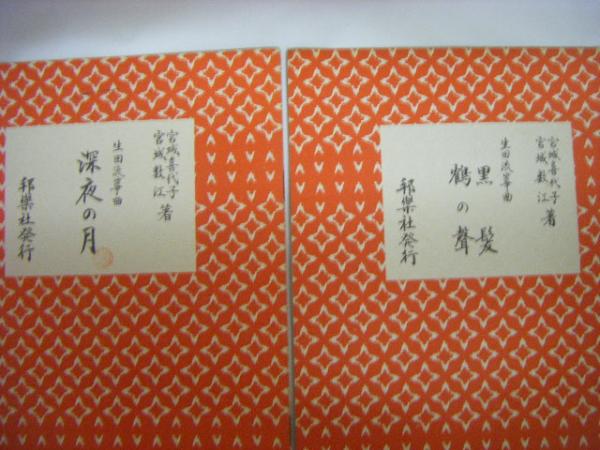 宮城喜代子
宮城数江 著
生田流箏曲
深夜の月
邦樂社発行
宮城喜代子
宮城数江 著
生田流箏曲
黒髪
鶴の聲
邦樂社発行